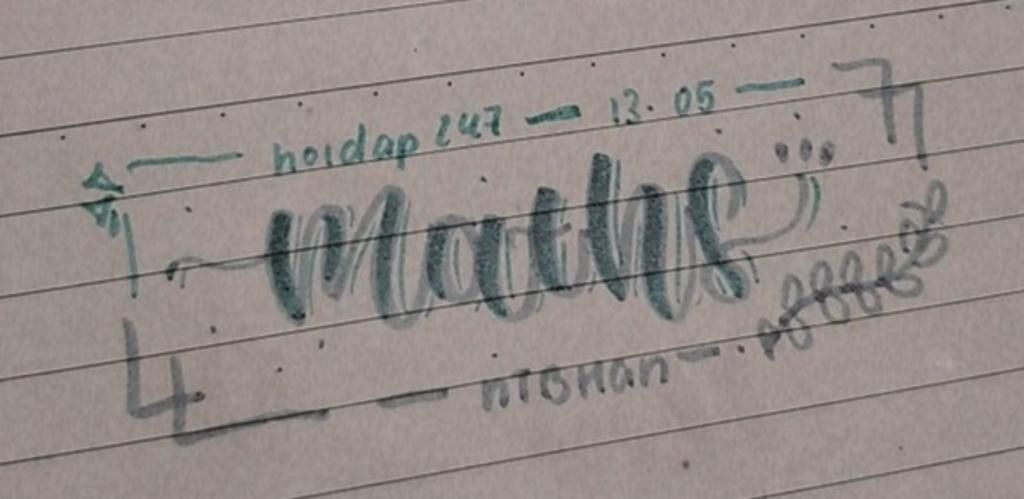 hoidap 247 — 13.05 —
maths
nTBHan